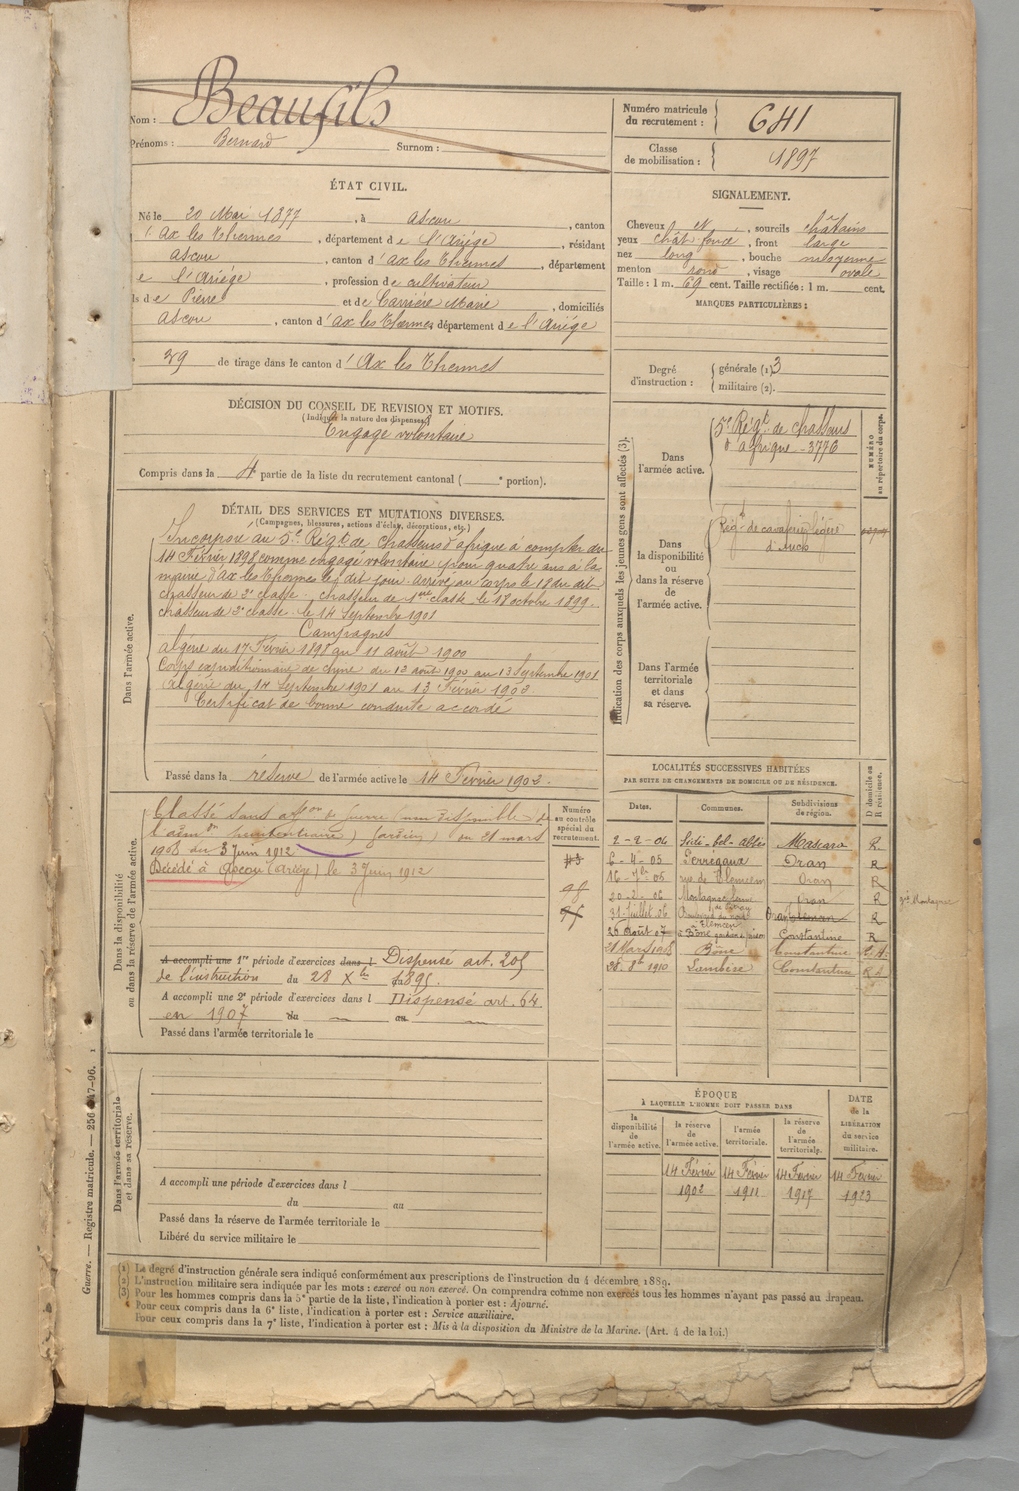 Nom : Beaufils
Prénoms : Bernard Surnom :
Numéro matricule du recrutement : 641
Classe de mobilisation : 1897
ÉTAT CIVIL.
Né le 20 Mai 1877, à Ascou, canton
Ax les Thermes, département de l'Ariège, résidant
Ascou, canton d'Ax les Thermes, département
e l'Ariége, profession de cultivateur
ls de Pierre et de Carrière Marie, domiciliés
Ascou, canton d'Ax les Thermes, département de l'Ariége
29 de tirage dans le canton d'Ax les Thermes
SIGNALEMENT.
Cheveux et, sourcils châtains
yeux chât foncé, front large
nez long, bouche moyenne
menton rond, visage ovale
Taille : 1 m. 69 cent. Taille rectifiée : 1 m. cent.
MARQUES PARTICULIÈRES :
Degré d'instruction : générale (1) 3
militaire (2).
DÉCISION DU CONSEIL DE REVISION ET MOTIFS.
(Indiquer la nature des dispenses)
Engagé volontaire
Compris dans la 4e partie de la liste du recrutement cantonal ( e portion).
DÉTAIL DES SERVICES ET MUTATIONS DIVERSES.
(Campagnes, blessures, actions d'éclat, décorations, etc.)
Dans l'armée active.
Incorporé au 5e Régt de Chasseurs d'afrique à compter du
14 Février 1898 comme engagé volontaire pour quatre ans à la
mairie d'Ax les Thermes le dit jour. arrivé au corps le 18 du dit
chasseur de 2e classe. chasseur de 1ère classe le 17 octobre 1899.
chasseur de 2e classe le 14 Septembre 1901
Campagnes
Algérie du 17 Février 1898 au 11 août 1900
Corps expéditionnaire de Chine du 12 août 1900 au 13 Septembre 1901
Algérie du 14 Septembre 1901 au 13 Février 1902
Certificat de bonne conduite accordé
Passé dans la réserve de l'armée active le 14 Février 1902.
Indication des corps auxquels les jeunes gens sont affectés (3).
NUMÉRO au répertoire du corps.
Dans l'armée active.
5e Régt de chasseurs
d'afrique - 3776
Dans la disponibilité ou dans la réserve de l'armée active.
Régt de cavalerie légère
d'Auch
Dans l'armée territoriale et dans sa réserve.
Dans la disponibilité ou dans la réserve de l'armée active.
Classé sans affon de guerre (non disponible de
l'admon pénitentiaire) (gardien) en 21 mars
1908 au 3 Juin 1912
Décédé à Ascou (Ariège) le 3 Juin 1912
Numéro au contrôle spécial du recrutement.
A accompli une 1re période d'exercices dans l Dispensé art. 205
de l'instruction du 28 Xbre 1895.
A accompli une 2e période d'exercices dans l Dispensé art. 64
en 1907 du au
Passé dans l'armée territoriale le
LOCALITÉS SUCCESSIVES HABITÉES
PAR SUITE DE CHANGEMENTS DE DOMICILE OU DE RÉSIDENCE.
D domicile ou R résidence.
Dates. Communes. Subdivisions de région.
2-2-04 Sidi-bel-abbès Mascara R
6-4-05 Perrégaux Oran R
16-7bre-05 rue de Tlemcen Oran R
20-2-06 Montagnac Oran R
31 Juillet 06 Oran R
26 Août 07 à Bône gardien de prison Constantine R
21 Mars 1908 Bône Constantine
28-8bre 1910 Lambèse Constantine
Dans l'armée territoriale et dans sa réserve.
A accompli une période d'exercices dans l
du au
Passé dans la réserve de l'armée territoriale le
Libéré du service militaire le
ÉPOQUE
À LAQUELLE L'HOMME DOIT PASSER DANS
DATE de la LIBÉRATION du service militaire.
la disponibilité de l'armée active. la réserve de l'armée active. l'armée territoriale. la réserve de l'armée territoriale.
14 Février 14 Février 14 Février 14 Février
1902 1911 1917 1923
(1) Le degré d'instruction générale sera indiqué conformément aux prescriptions de l'instruction du 4 décembre 1889.
(2) L'instruction militaire sera indiquée par les mots : exercé ou non exercé. On comprendra comme non exercés tous les hommes n'ayant pas passé au drapeau.
(3) Pour les hommes compris dans la 5e partie de la liste, l'indication à porter est : Ajourné.
Pour ceux compris dans la 6e liste, l'indication à porter est : Service auxiliaire.
Pour ceux compris dans la 7e liste, l'indication à porter est : Mis à la disposition du Ministre de la Marine. (Art. 4 de la loi.)
Guerre. — Registre matricule. — 256 47-96. 1